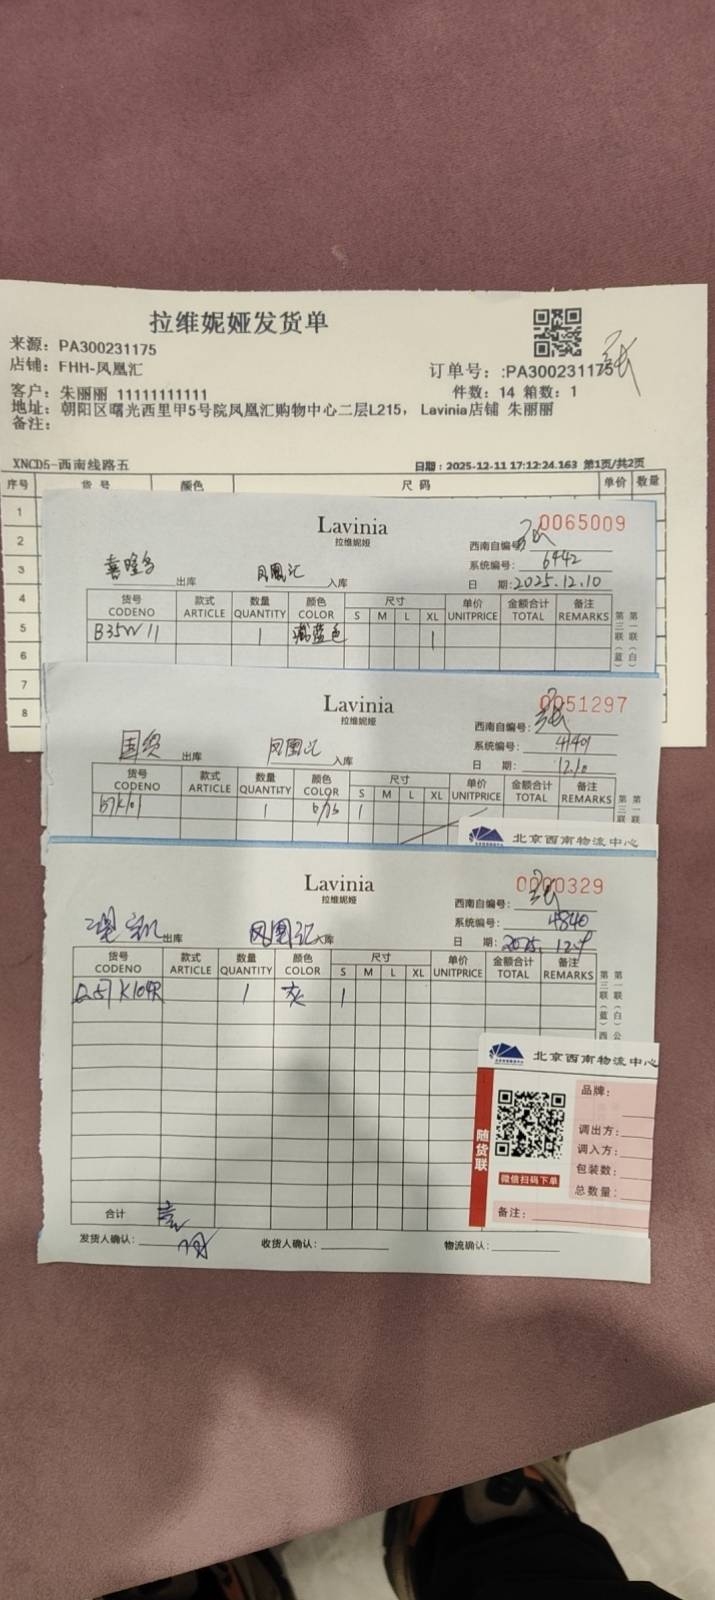 拉维妮娅发货单
来源：PA300231175
店铺：FHH-凤凰汇
订单号：:PA300231175
客户：朱丽丽 11111111111
件数：14 箱数：1
地址：朝阳区曙光西里甲5号院凤凰汇购物中心二层L215， Lavinia店铺 朱丽丽
备注：
XNCD5-西南线路五
日期：2025-12-11 17:12:24.163 第1页/共2页
序号 货号 颜色 尺码 单价 数量
1
2
3
4
5
6
7
8
Lavinia
拉维妮娅
0065009
西南自编号：
系统编号：6442
出库 凤凰汇 入库
日 期：2025.12.10
货号 款式 数量 颜色 尺寸 单价 金额合计 备注
CODENO ARTICLE QUANTITY COLOR S M L XL UNITPRICE TOTAL REMARKS
B35W11 1 藏蓝色 1
第一联（白）
第三联（蓝）
Lavinia
拉维妮娅
0051297
西南自编号：
系统编号：
国贸 出库 凤凰汇 入库
日 期：12.10
货号 款式 数量 颜色 尺寸 单价 金额合计 备注
CODENO ARTICLE QUANTITY COLOR S M L XL UNITPRICE TOTAL REMARKS
1 1
第一联
第三联
北京西南物流中心
Lavinia
拉维妮娅
0000329
西南自编号：
系统编号：4840
出库 凤凰汇 入库
日 期：2025.12.9
货号 款式 数量 颜色 尺寸 单价 金额合计 备注
CODENO ARTICLE QUANTITY COLOR S M L XL UNITPRICE TOTAL REMARKS
1 灰 1
第一联（白）公
第三联（蓝）西
北京西南物流中心
随货联
微信扫码下单
品牌：
调出方：
调入方：
包装数：
总数量：
备注：
合计
发货人确认： 收货人确认： 物流确认：